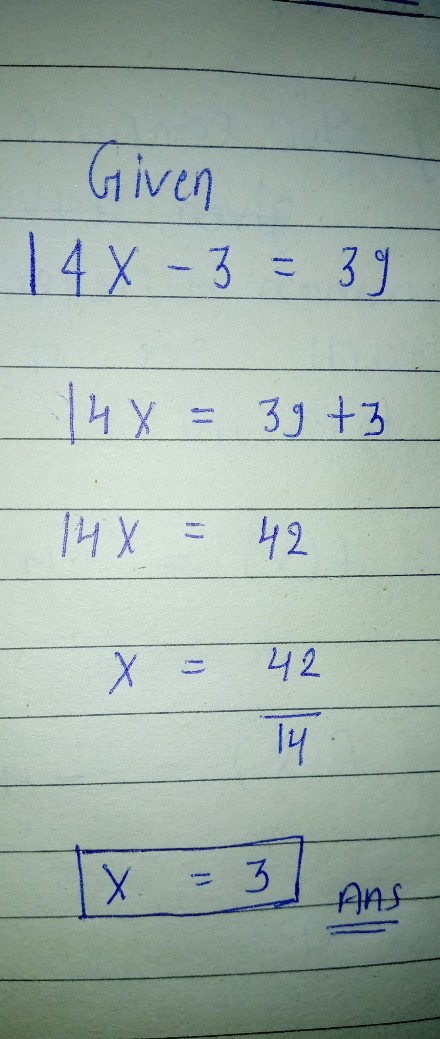 Given
14x - 3 = 39
14x = 39 + 3
14x = 42
x = 42
14
x = 3
Ans